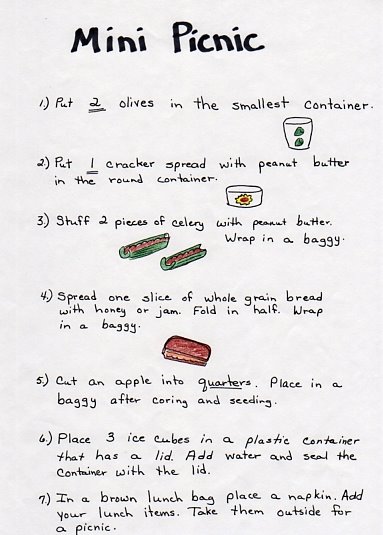 Mini Picnic
1.) Put 2 olives in the smallest container.
2.) Put 1 cracker spread with peanut butter
in the round container.
3.) Stuff 2 pieces of celery with peanut butter.
Wrap in a baggy.
4.) Spread one slice of whole grain bread
with honey or jam. Fold in half. Wrap
in a baggy.
5.) Cut an apple into quarters. Place in a
baggy after coring and seeding.
6.) Place 3 ice cubes in a plastic container
that has a lid. Add water and seal the
container with the lid.
7.) In a brown lunch bag place a napkin. Add
your lunch items. Take them outside for
a picnic.